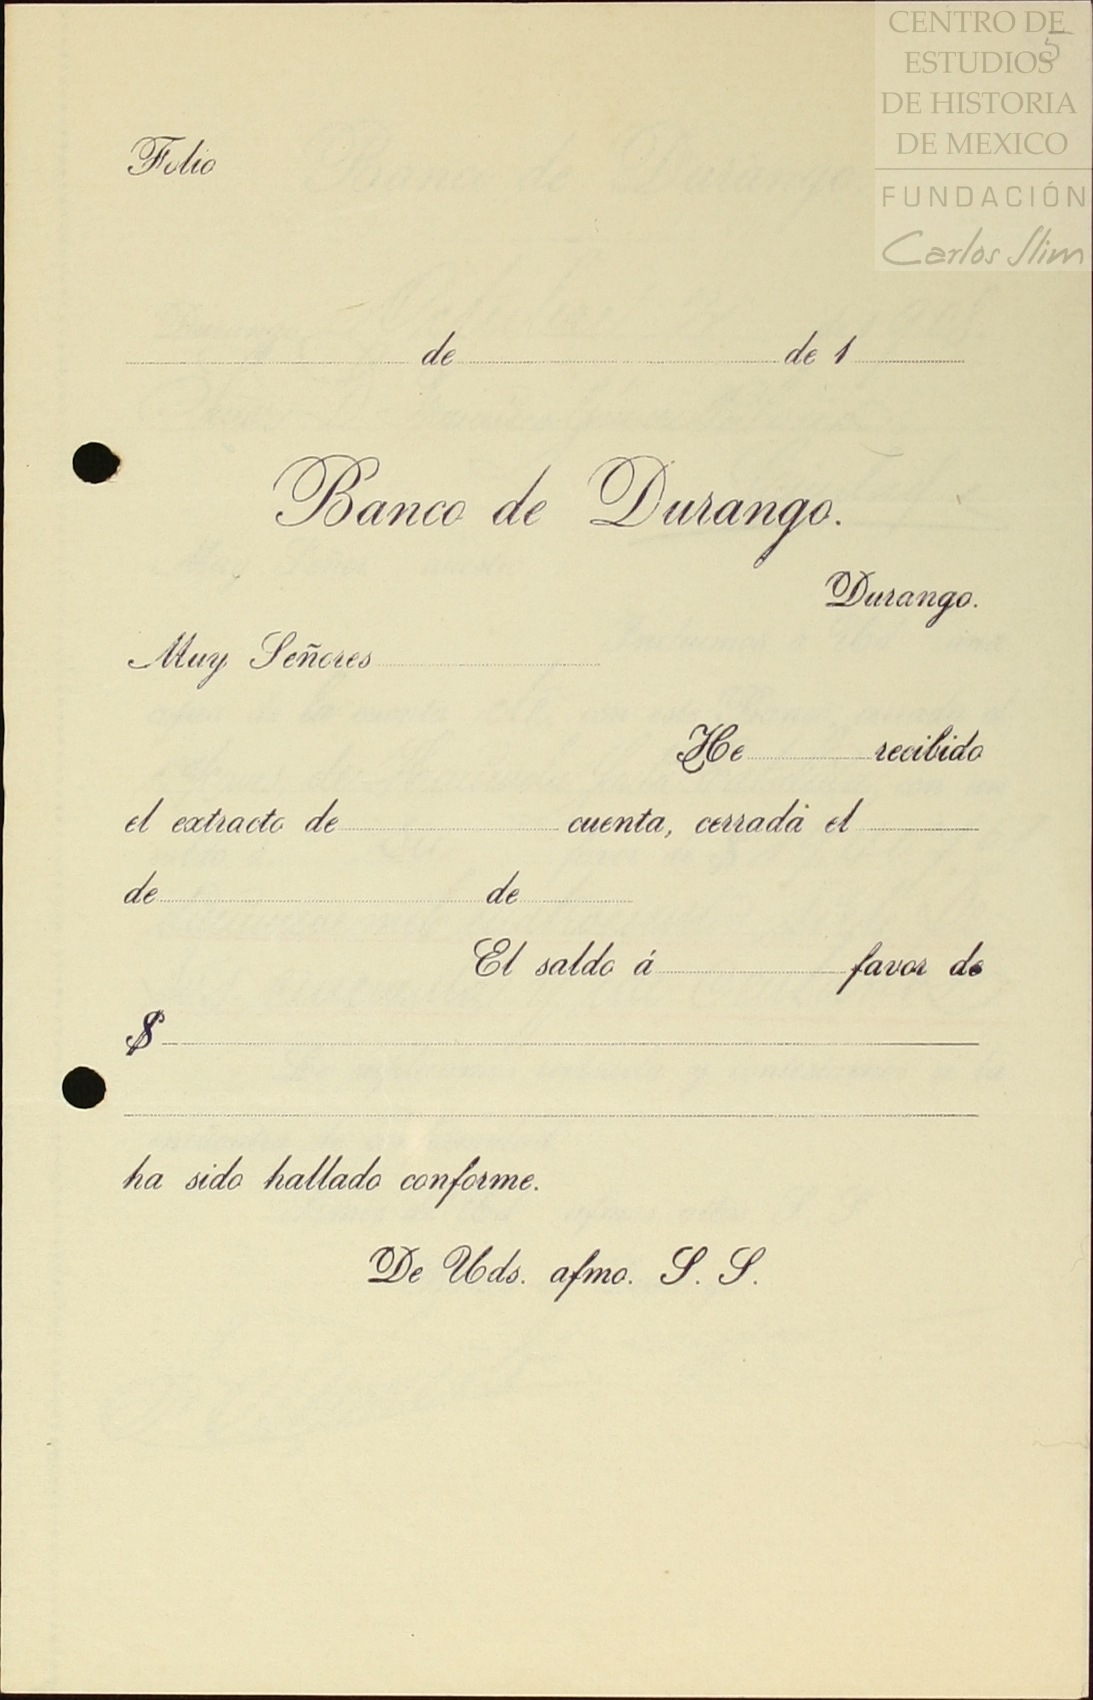 CENTRO DE
ESTUDIOS
DE HISTORIA
DE MEXICO
FUNDACIÓN
Carlos Slim
5
Folio
de de 1
Banco de Durango.
Durango.
Muy Señores
He recibido
el extracto de cuenta, cerrada el
de de
El saldo á favor de
$
ha sido hallado conforme.
De Uds. afmo. S. S.